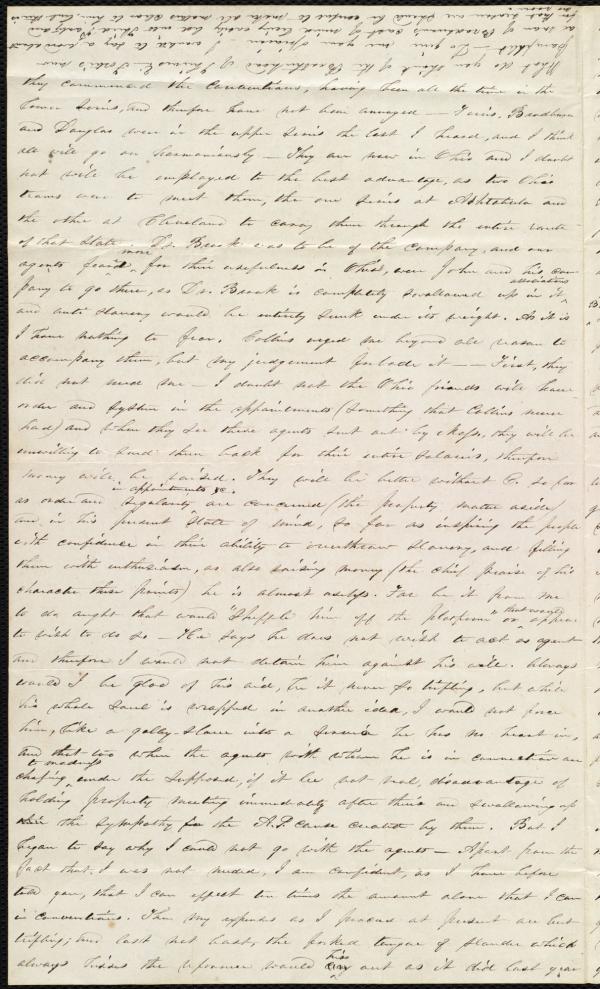 What do you think of the Brotherhood of Thieves
pamphlet — Do give me your opinion
they commenced the conventions, having been all the time in the
lower series, and therefore have not been annoyed — Ferris, Bradburn
and Douglas were in the upper series the last I heard, and I think
all will go on harmoniously — They are now in Ohio and I doubt
not will be employed to the best advantage, as two Ohio
teams were to meet them, the one series at Ashtabula and
the other at Cleveland to carry them through the entire route
of that State. Dr. Brook was to be of the company, and our
agents feared more for their usefulness in Ohio, were John and his com-
pany to go there, as Dr. Brook is completely swallowed up in it associations
and anti slavery would be entirely sunk under its weight. As it is
I have nothing to fear. Collins urged me beyond all reason to
accompany them, but my judgement forbade it — — First, they
did not need me — I doubt not the Ohio friends will have
order and system in the appointments (something that Collins never
had) and when they see these agents sent out by Mass, they will be
unwilling to send them back for their entire salaries, therefore
money will be raised. They will be better without C. so far
as order and regularity in appointments &c. are concerned (the property matter aside)
and in his present state of mind, so far as inspiring the people
with confidence in their ability to overthrow slavery, and filling
them with enthusiasm, as also raising money (the chief praise of his
character these points) he is almost useless. Far be it from me
to do aught that would "shuffle him off the platform" or that would appear
to wish to do so — He says he does not wish to act as agent
and therefore I would not detain him against his will. Always
would I be glad of his aid, be it never so trifling, but while
his whole soul is wrapped in another idea, I would not force
him, like a galley-slave into a service he has no heart in,
and that too when the agents with whom he is in connection are
chafing to madness under the supposed, if it be not real, disadvantage of
holding property meeting immediately after theirs and swallowing up
the sympathy for the A.S. cause created by them. But I
began to say why I could not go with the agents — Apart from the
fact that I was not needed, I am confident, as I have before
told you, that I can effect ten times the amount alone that I can
in conventions. Then my expenses as I proceed at present are but
trifling; and last not least, the forked tongue of slander which
always hisses the reformer would hiss out as it did last year